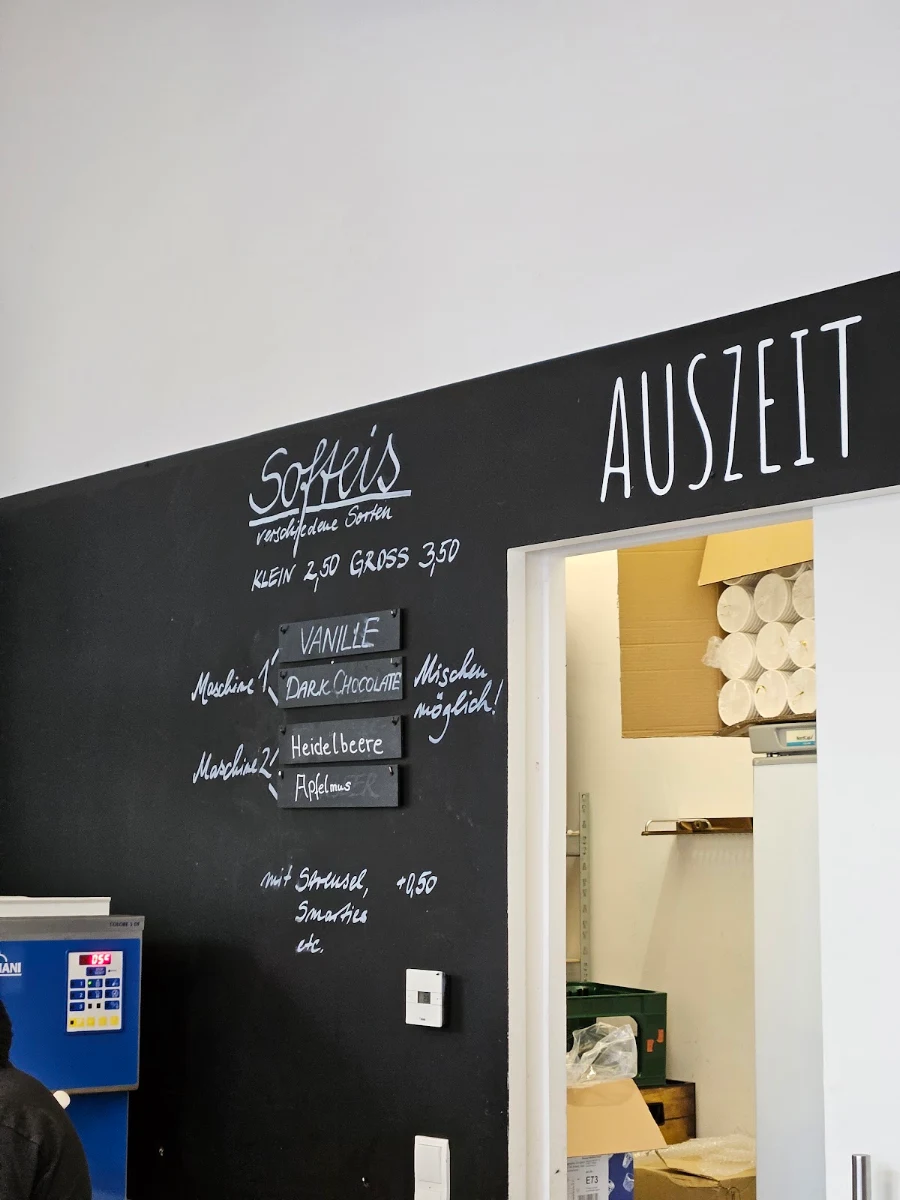 AUSZEIT
Softeis
verschiedene Sorten
KLEIN 2,50 GROSS 3,50
VANILLE
Maschine 1
DARK CHOCOLATE
Mischen
möglich!
Heidelbeere
Maschine 2
Apfelmus
mit Streusel, +0,50
Smarties
etc.
E73